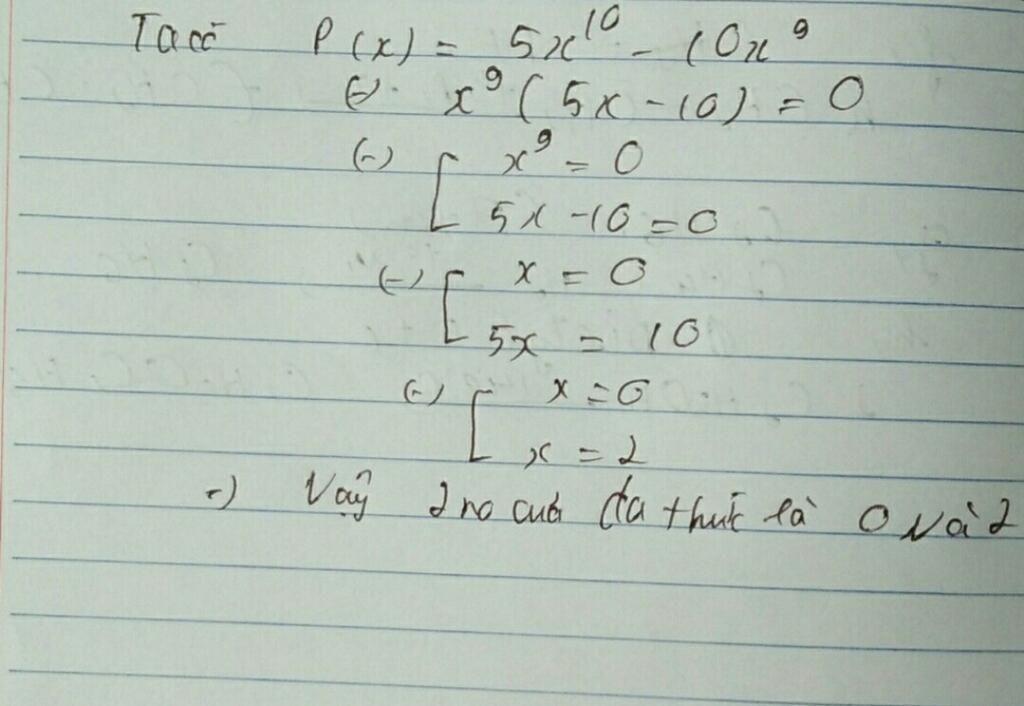 Ta có P(x) = 5x¹⁰ - 10x⁹
(=) x⁹(5x - 10) = 0
(=) [ x⁹ = 0
5x - 10 = 0
(=) [ x = 0
5x = 10
(=) [ x = 0
x = 2
=) Vậy 2 no của đa thức là 0 và 2